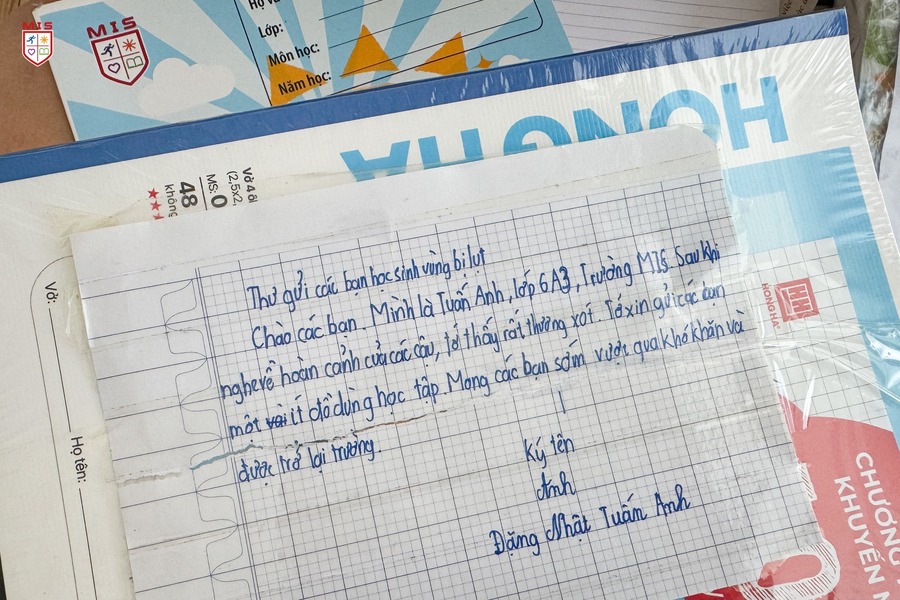 MIS
MIS
Họ và
Lớp:
Môn học:
Năm học:
HONG HA
Vở 4 ôl
(2,5x2,
MS: 0
48
không
Vở:
Họ tên:
Thư gửi các bạn học sinh vùng bị lụt
Chào các bạn. Mình là Tuấn Anh, lớp 6A3, Trường MIS. Sau khi
nghe về hoàn cảnh của các cậu, tớ thấy rất thương xót. Tớ xin gửi các bạn
một vài ít đồ dùng học tập. Mong các bạn sớm vượt qua khó khăn và
được trở lại trường.
Ký tên
Anh
Đặng Nhật Tuấn Anh
HONG HA
CHƯƠNG
KHUYẾN M